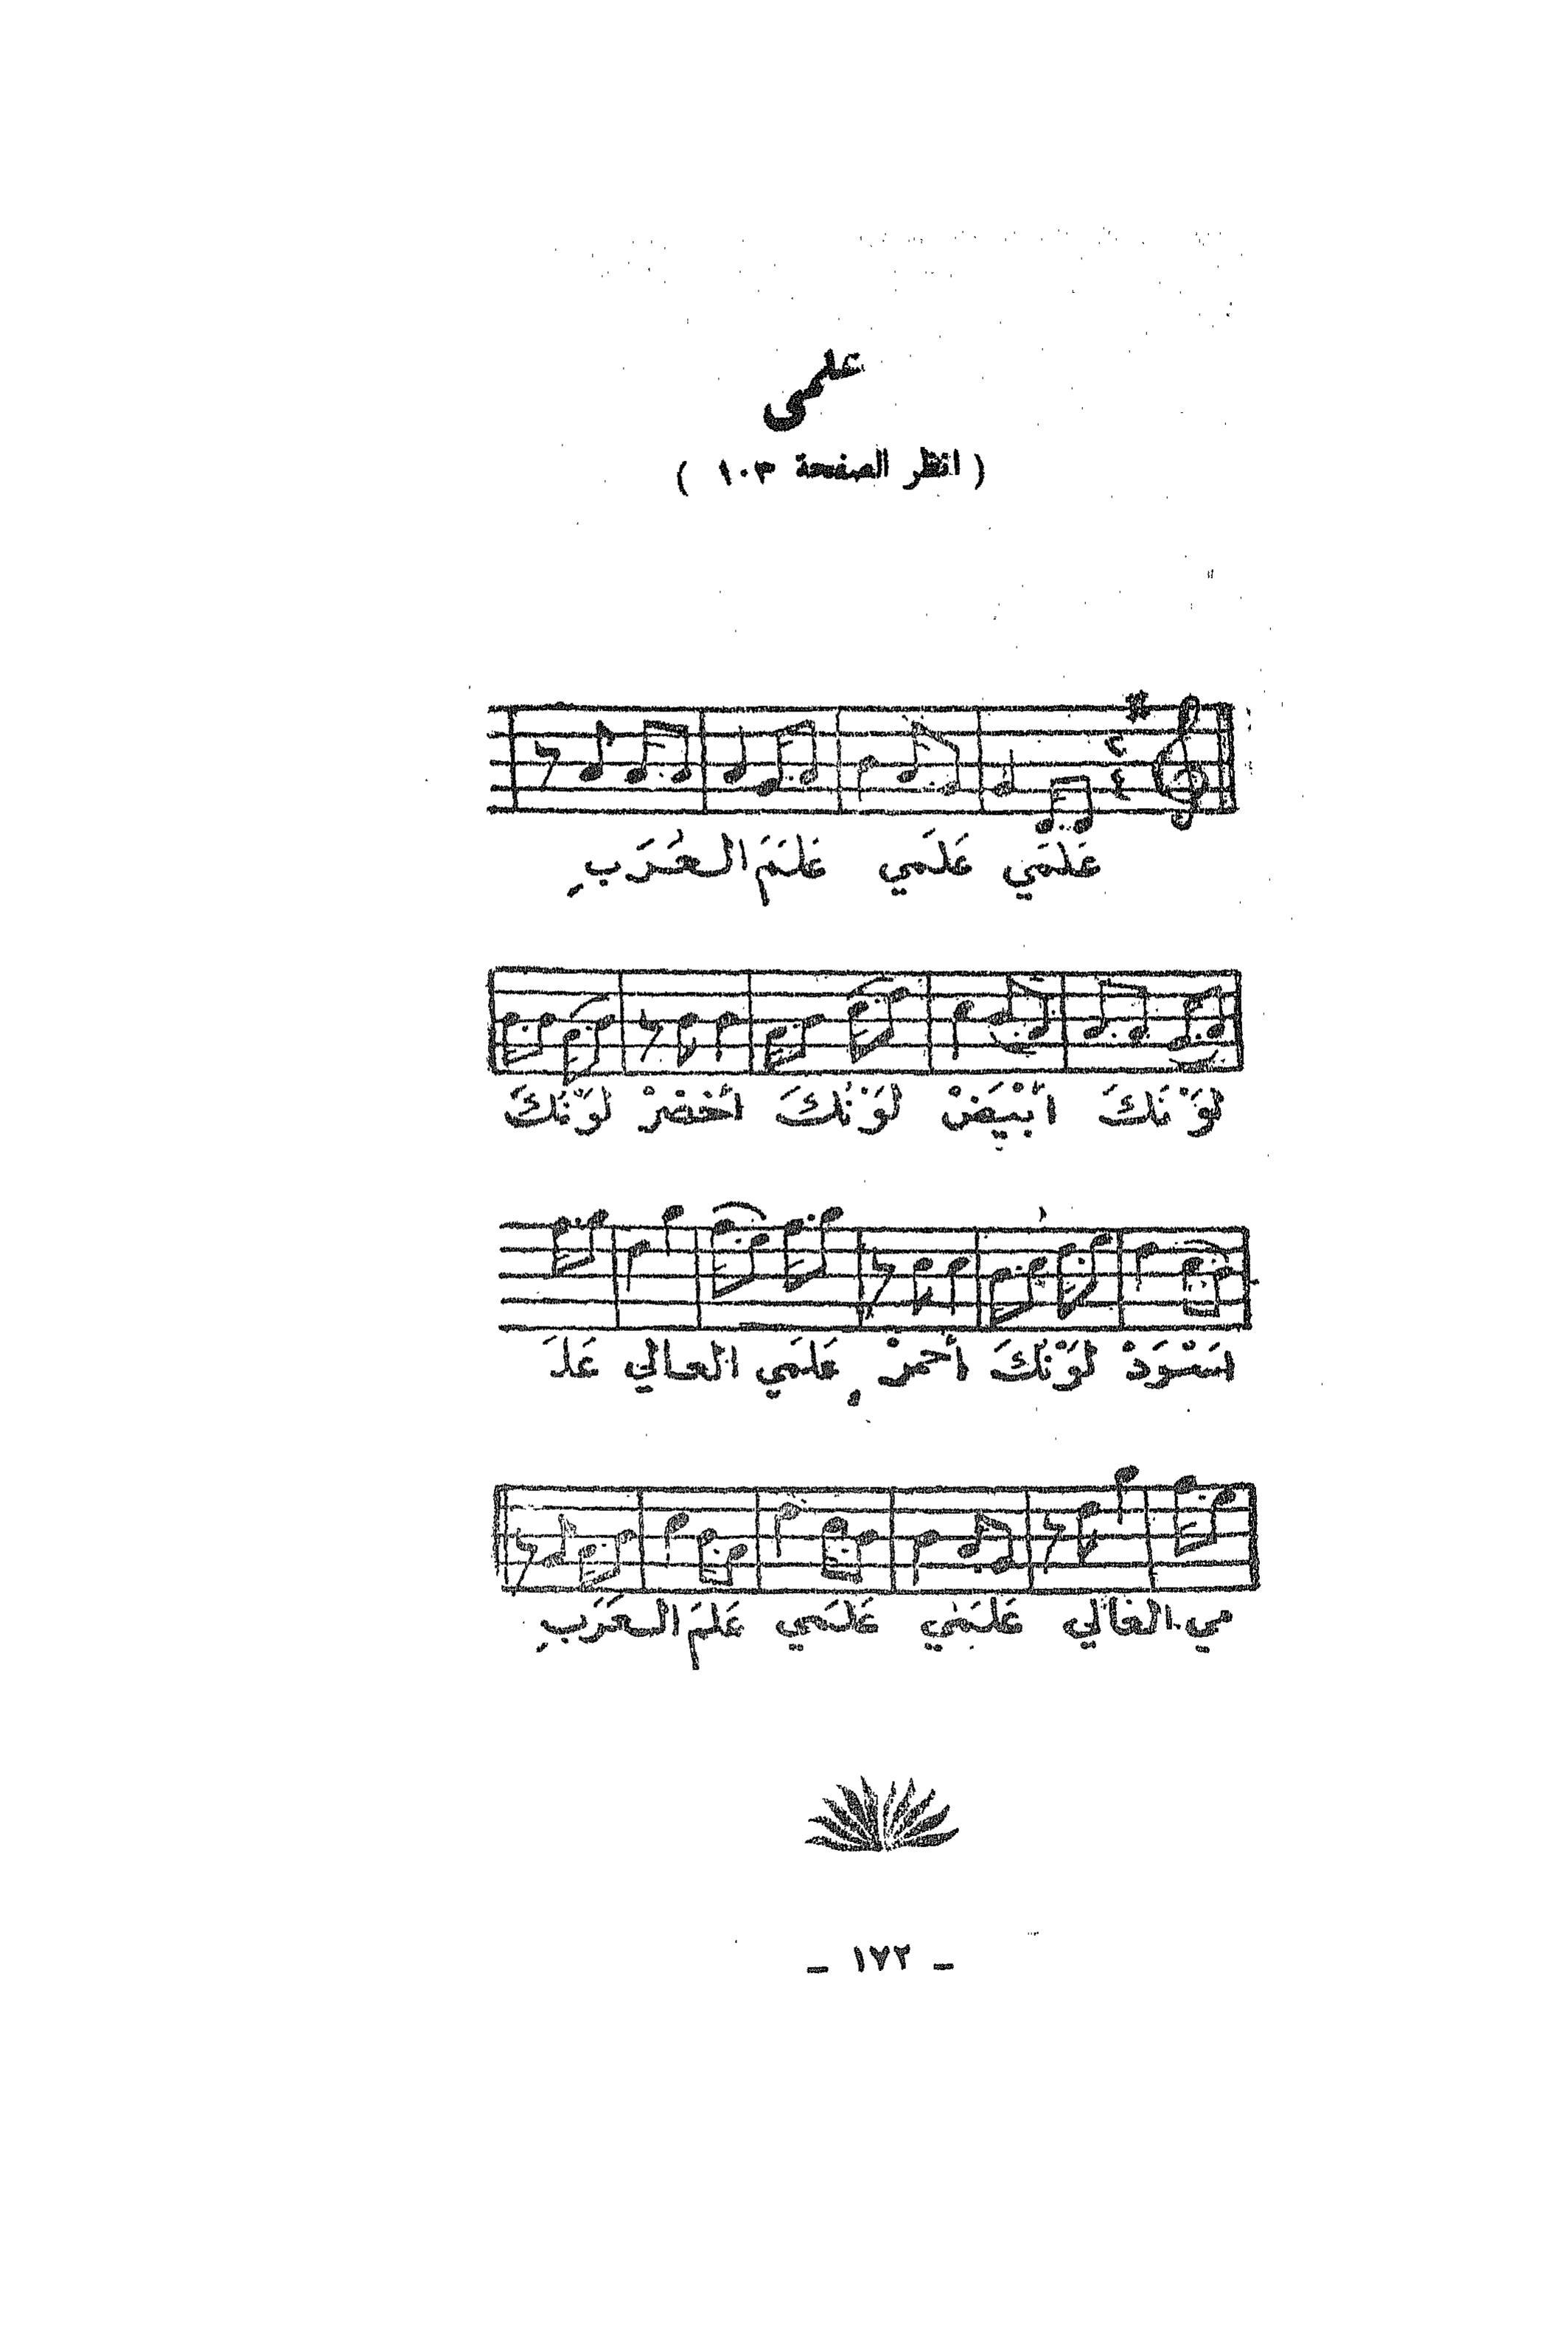 علمي
( انظر الصفحة ١٠٣ )
٢
٤
عَلَمَي عَلَمَي عَلَمَ العَرَبِ
لَوْنَكَ أبْيَضْ لَوْنُكَ أخضرْ لَوْنُكَ
اسْوَدْ لَوْنُكَ أحمرْ عَلَمي العالي عَلَـ
مي الغالي عَلَمَي عَلَمَي عَلَمَ العَرَبِ
ـ ١٧٢ ـ